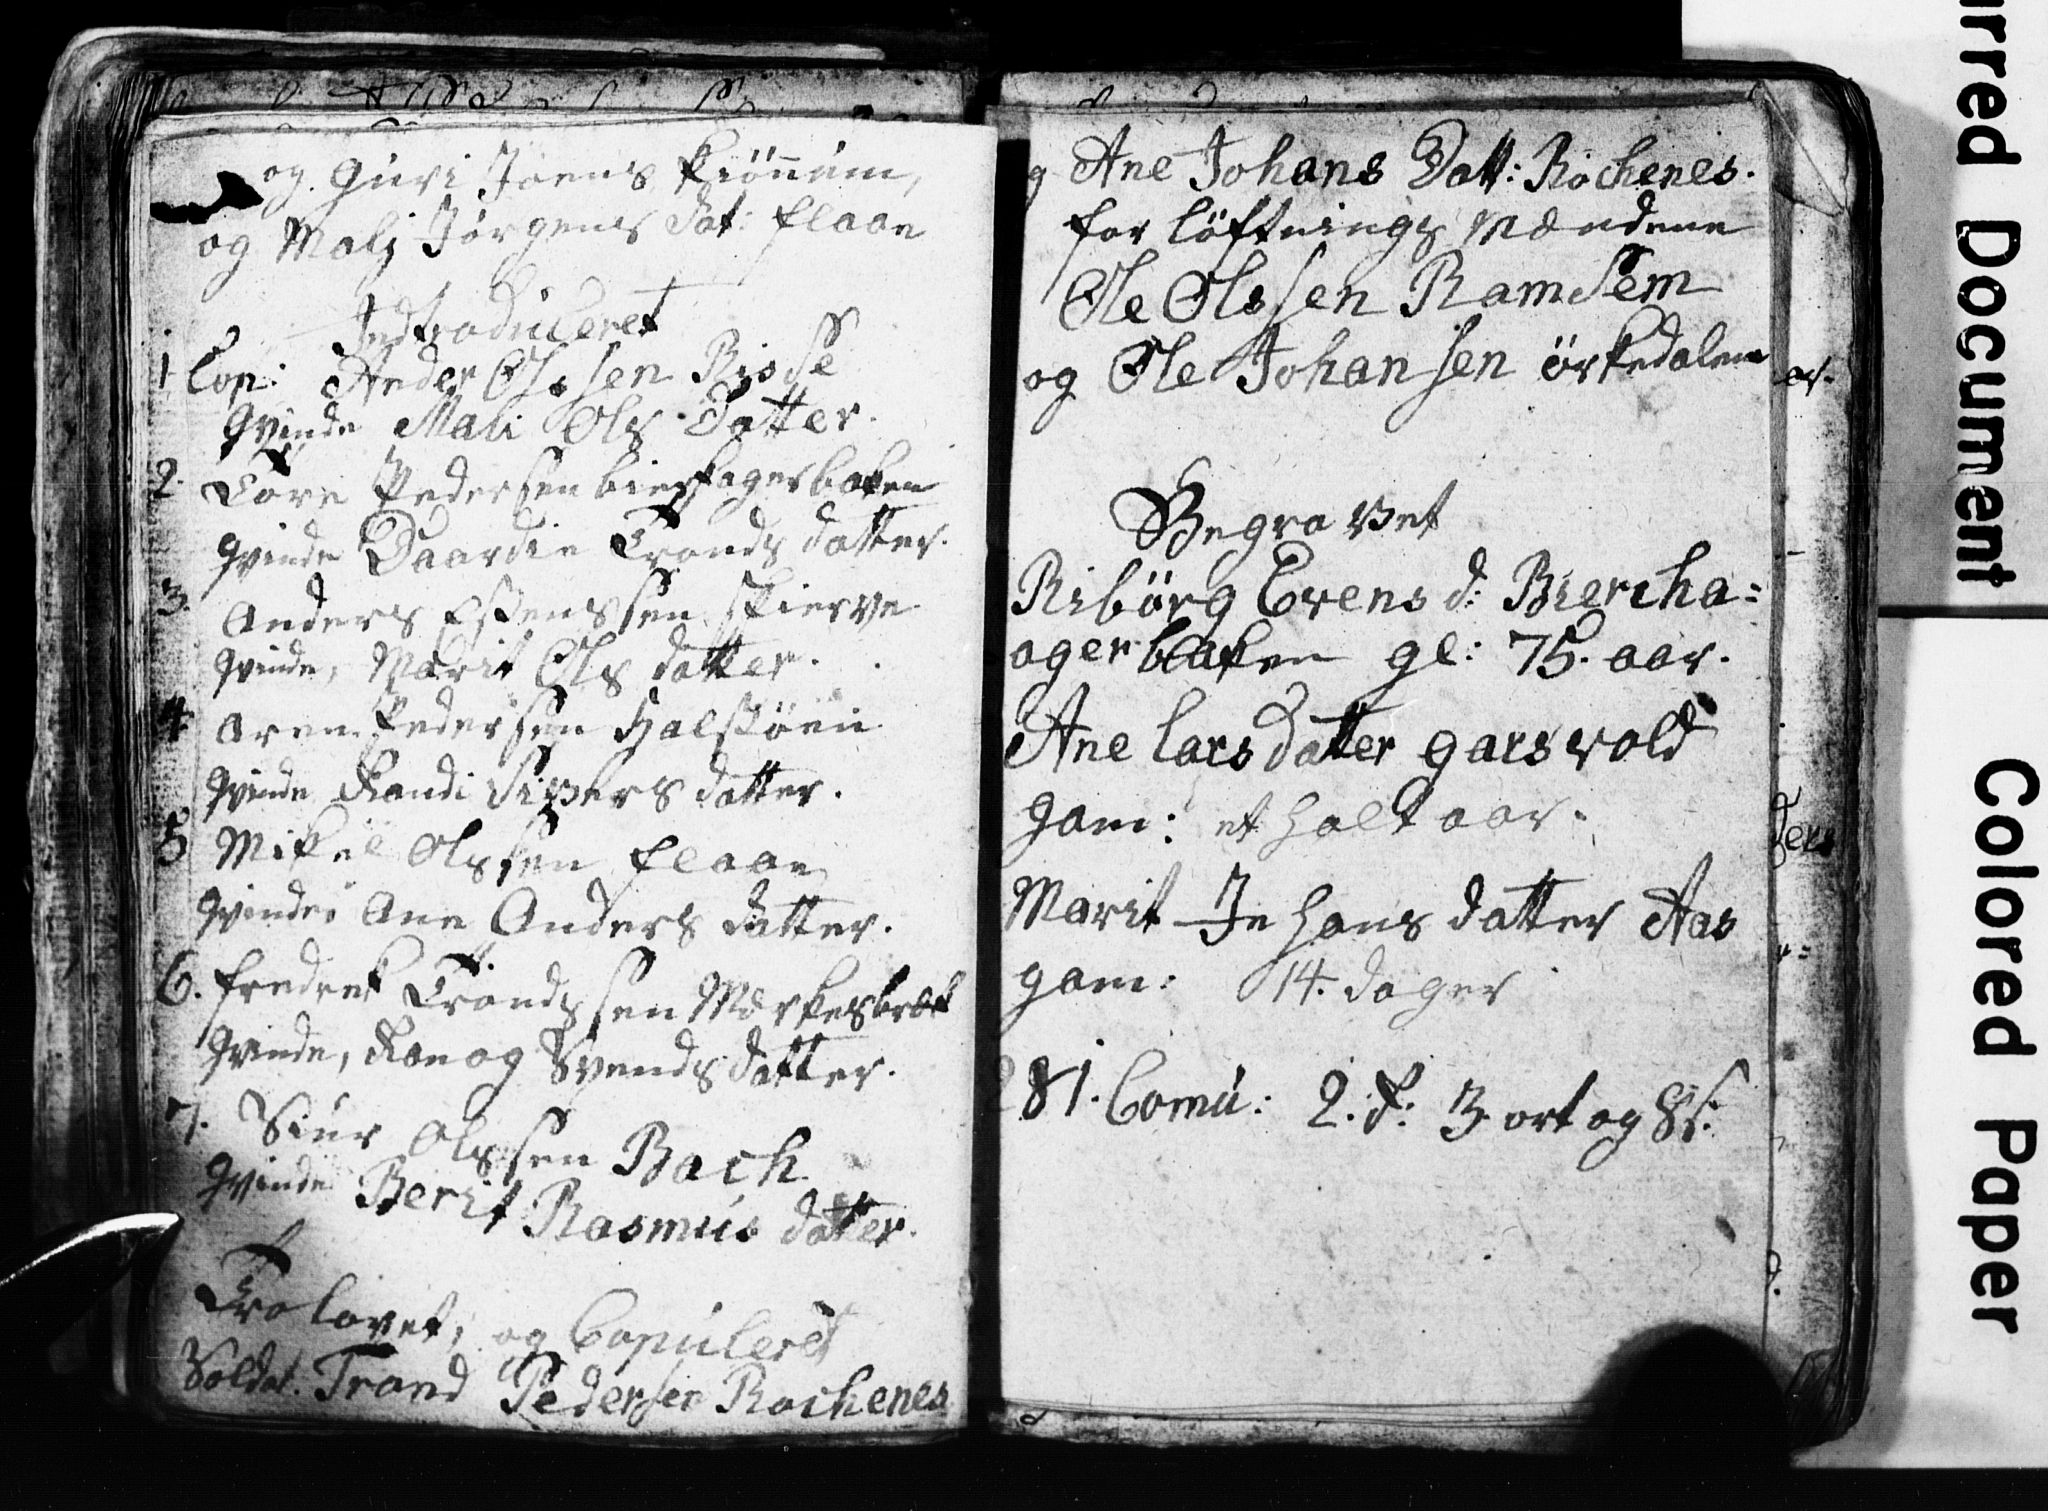 og Guri Joens Kiönnem,
og Malj Jörgens dat: Flaan
Indtroduceret
1 Cop: Ander Olssen Risse
Qvinde Mali Ols Datter.
2. Tore Pedersen bierkagerbaken
qvinde Baardin Tronds datter.
3 Anders Essenssen skierve
qvinde, Marit Ols datter.
4 Aren Pedersen Halsköen
qvinde Randi Siverts datter.
5 Mikel Olssen Flaan
qvinde: Ane Anders datter.
6. fredrek Trondssen Mærkesbræk
qvinde, Ranog Svends datter.
7. Siur Olssen Bach
qvinde Berit Rasmus datter.
Trolovet, og Copuleret
Soldat. Trond Pedersen Rochenes
g Ane Johans Datt: Rochenes.
for löftnings Mændene
Ole Olssen Ramsem
og Ole Johansen örkedalen
Begravet
Ribörg Evens d: Biercha=
agerbaken gl: 75. aar.
Ane Lars datter garsvold
gam: et halt aar.
Marit Johans datter Aas
gam: 14. dager
281. Comu: 2. d: 3 ort og 8 s:
urred Document
Colored Paper